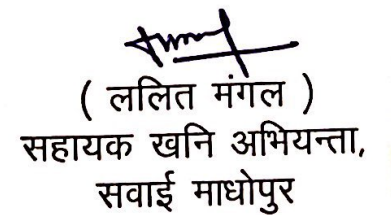 ( ललित मंगल )
सहायक खनि अभियन्ता,
सवाई माधोपुर